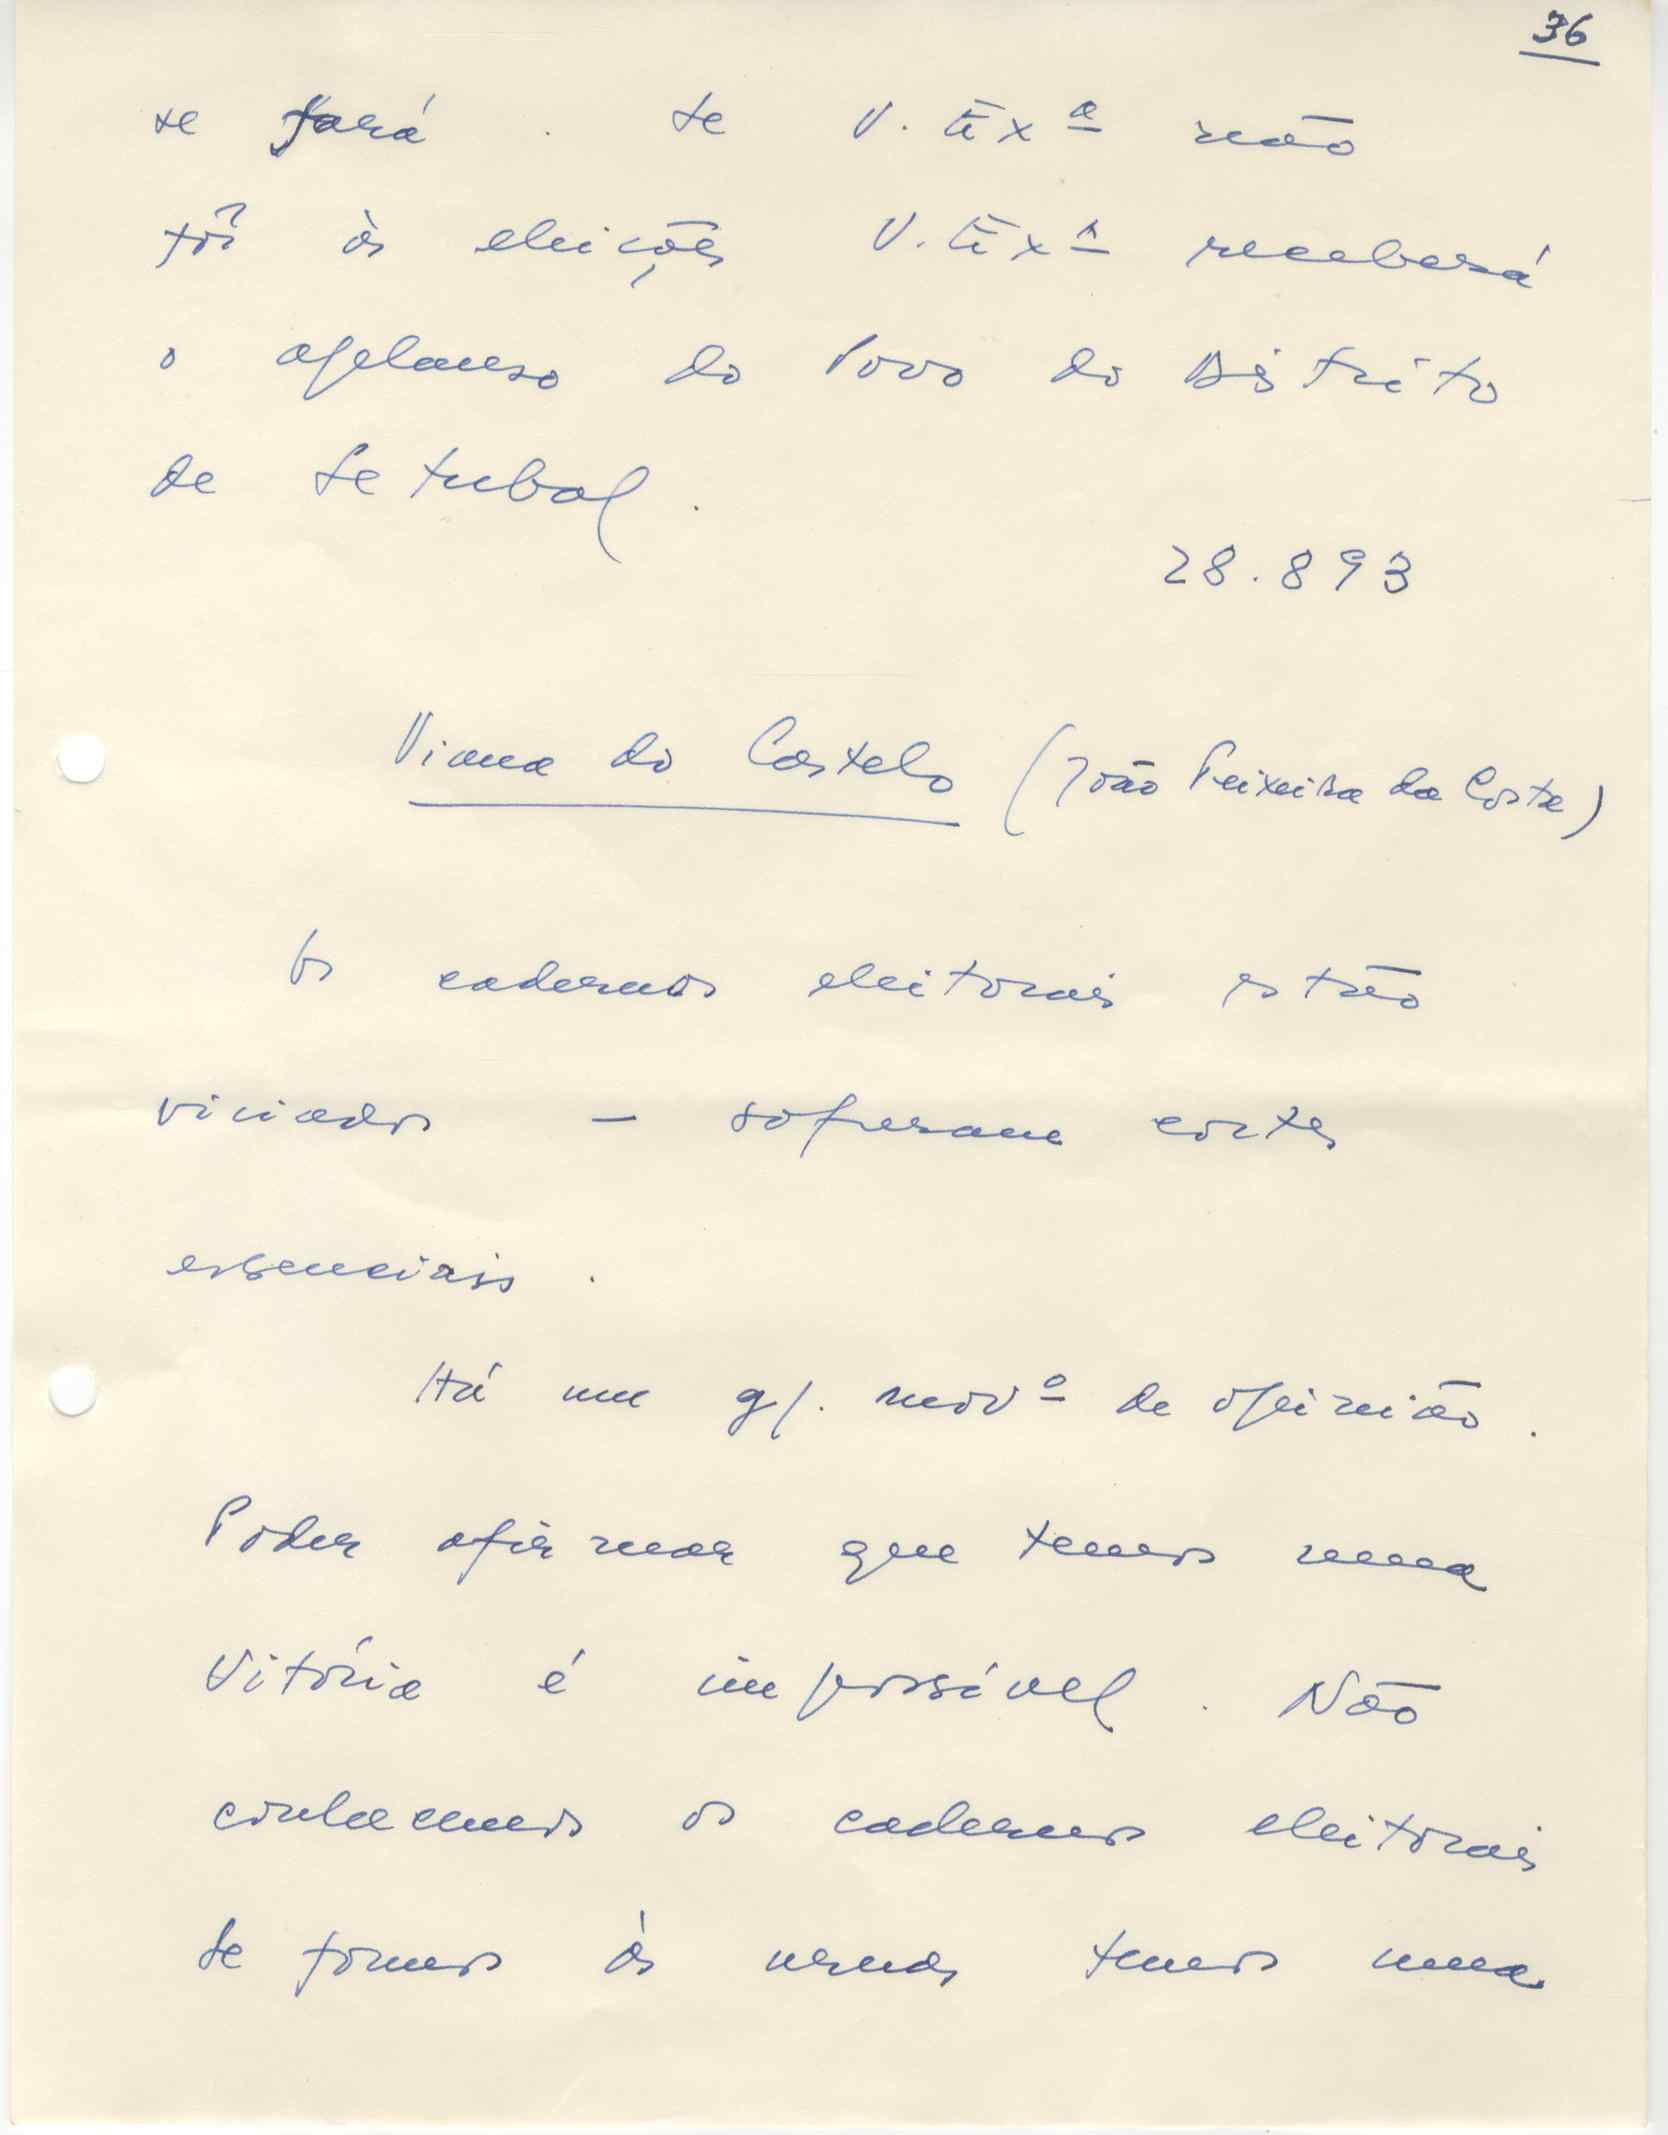 36
se fará. Se V. Exª não
fôr às eleições V. Exª receberá
o aplauso do Povo do Distrito
de Setubal.
28.893
Viana do Castelo (João Peixeira da Costa)
Os cadernos eleitorais estão
viciados – sofreram cortes
essenciais.
Há um gr. movº de opinião.
Poder afirmar que temos uma
Vitória é impossível. Não
conhecemos os cadernos eleitorais
Se formos às urnas temos uma